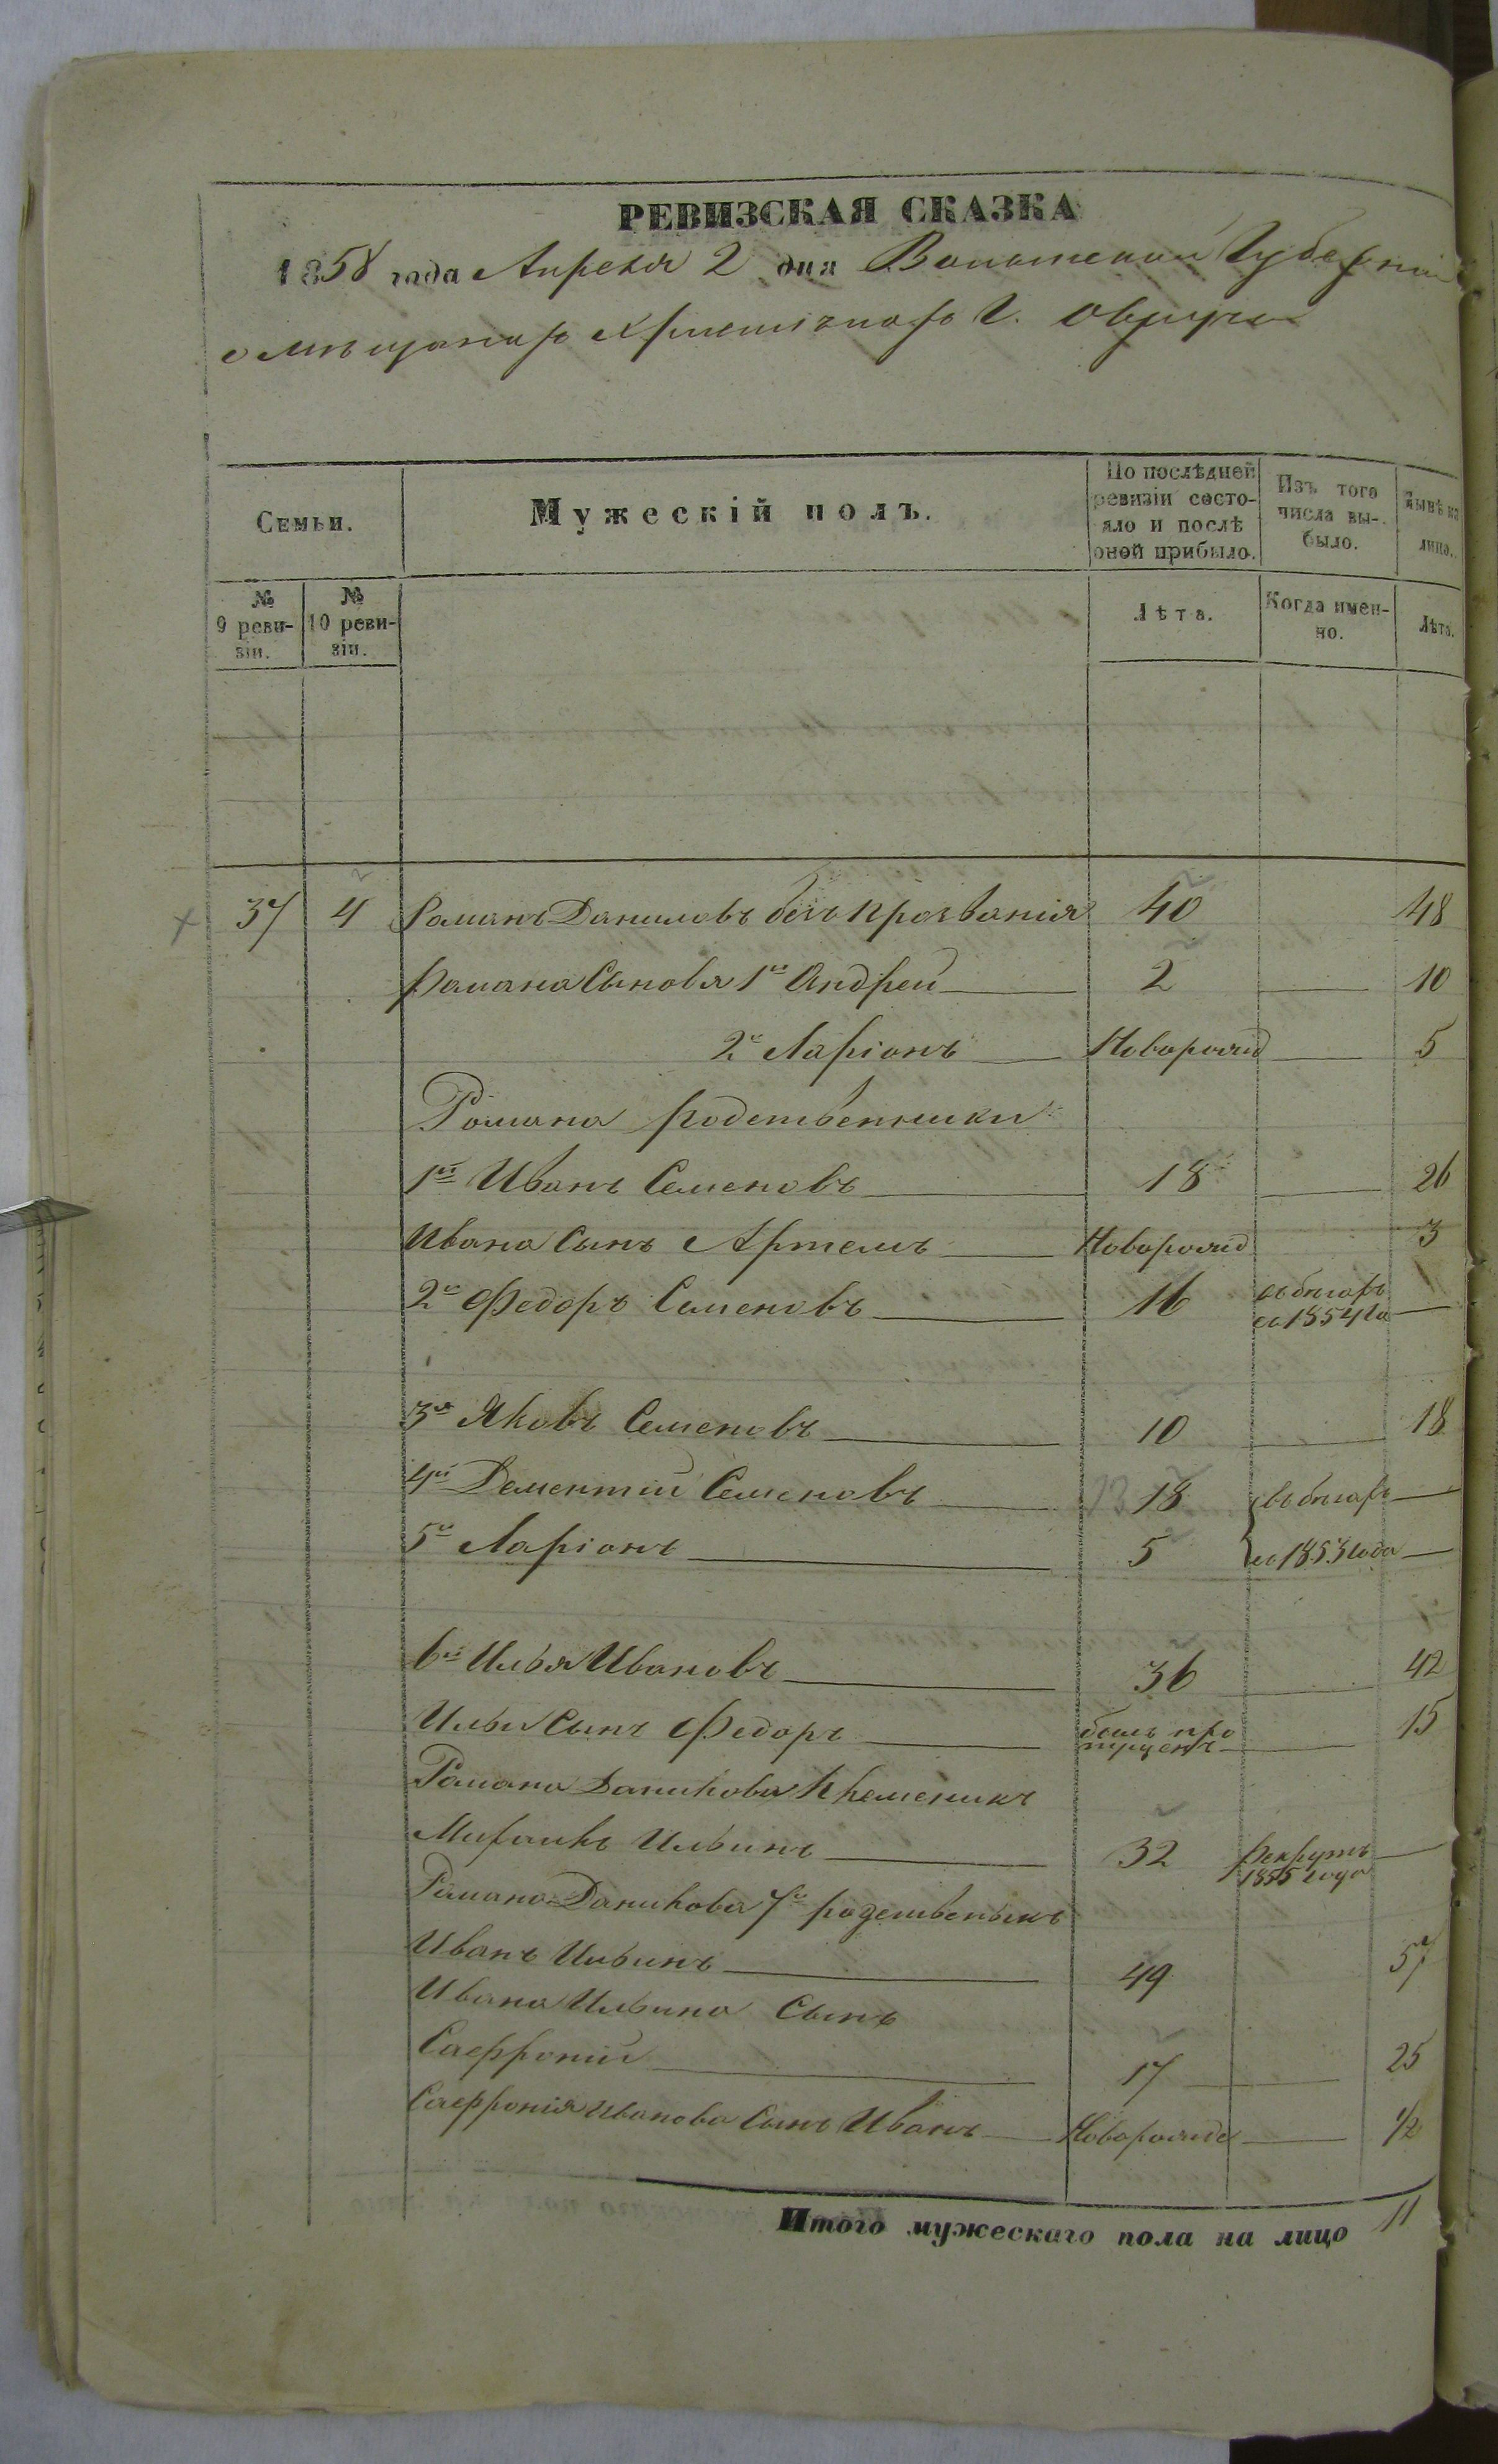 РЕВИЗСКАЯ СКАЗКА
1858 года Апреля 2 дня Волынской Губерніи
о мещанахъ Христіанахъ г. Овруча
Семьи.
Мужескій полъ.
По послѣдней ревизіи состояло и послѣ оной прибыло.
Изъ того числа выбыло.
Нынѣ на лицо.
№ 9 ревизіи.
№ 10 ревизіи.
Лѣта.
Когда именно.
Лѣта.
37 4 Романъ Даниловъ безъ прозванія 40 48
Романа Сыновья 1й Андрей 2 10
2й Ларіонъ Новорожд 5
Романа родственники
1й Иванъ Семеновъ 18 26
Ивана Сынъ Артемъ Новорожд 3
2й Федоръ Семеновъ 16 въ бѣгахъ
съ 1854 го
3й Яковъ Семеновъ 10 18
4й Дементій Семеновъ 18 въ бѣгахъ
5й Ларіонъ 5 съ 1853 года
6й Илья Ивановъ 36 42
Ильи Сынъ Федоръ былъ про
пущенъ 15
Романа Данилова племеникъ
Ильинъ 32 рекрутъ
1855 года
Романа Данилова 7й родственикъ
Иванъ Ильинъ 49 57
Ивана Ильина Сынъ
Сафроній 17 25
Сафронія Иванова Сынъ Иванъ Новорожде 1/2
Итого мужескаго пола на лицо 11